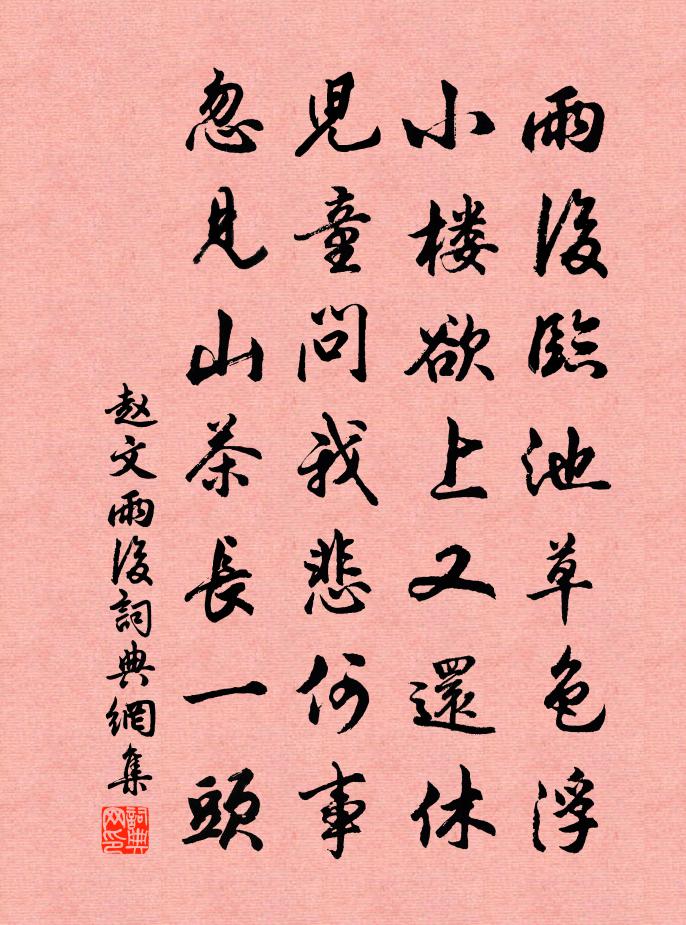 雨後臨池草色浮
小楼欲上又還休
児童问我悲何事
忽見山茶長一頭
赵文雨後詞典網集
詞典网印